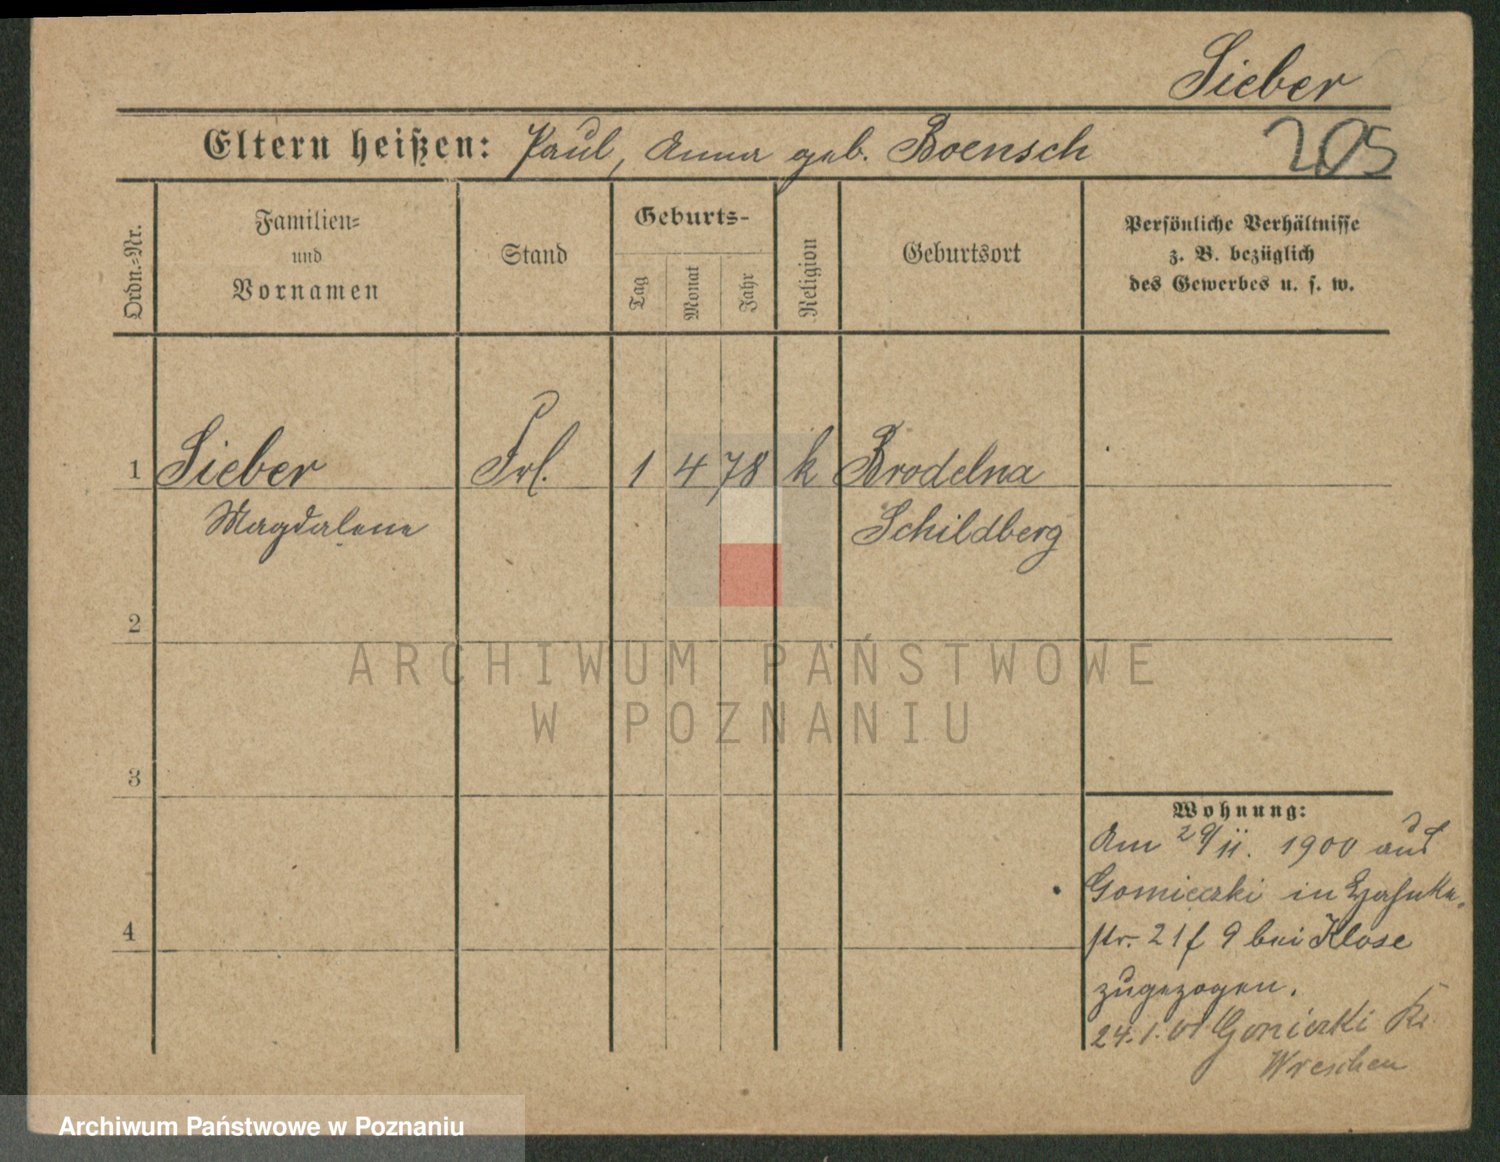 Sieber
Eltern heißen: Paul, Anna geb. Boensch
205
Ordn.-Nr.
Familien-
und
Vornamen
Stand
Geburts-
Tag
Monat
Jahr
Religion
Geburtsort
Persönliche Verhältnisse
z. B. bezüglich
des Gewerbes u. s. w.
1 Sieber Frl. 1 4 78 k Brodelna
Magdalene Schildberg
2
ARCHIWUM PAŃSTWOWE
W POZNANIU
3
Wohnung:
Am 29/11. 1900 aus
in
4
str. 21 f 9 bei Klose
zugezogen.
24.1.01 Goniczki Kr.
Wreschen
Archiwum Państwowe w Poznaniu